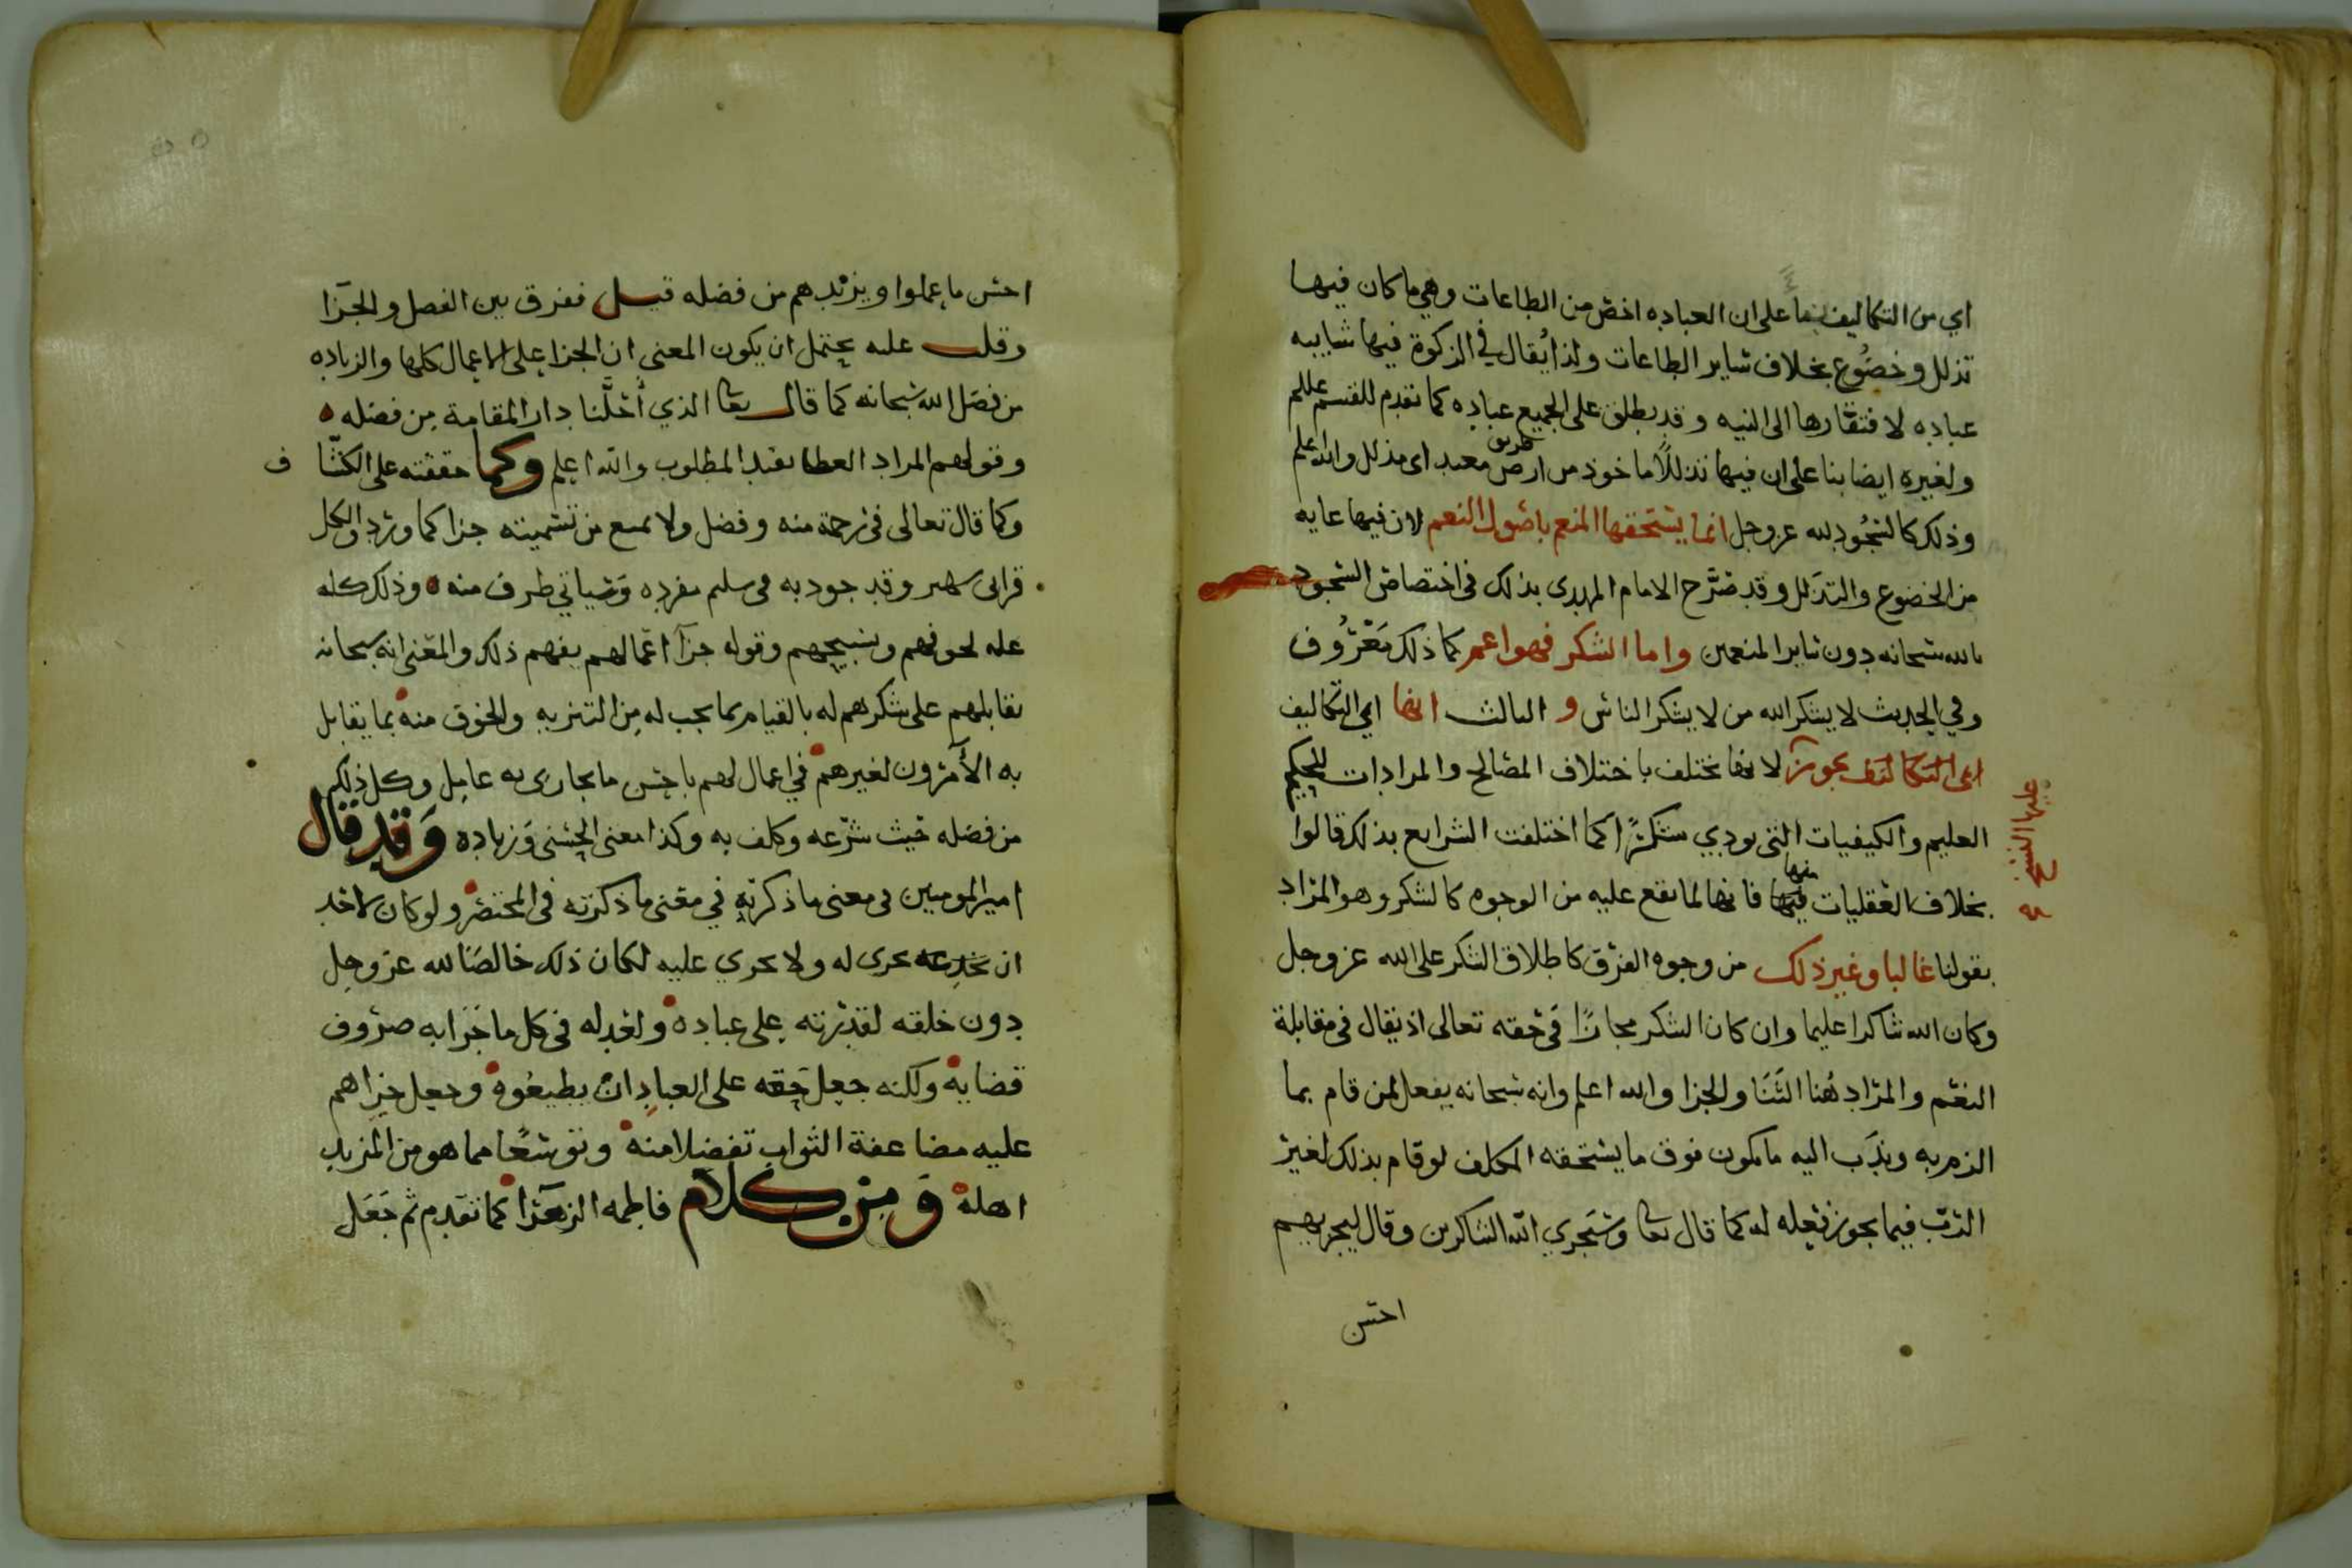 اي من التكاليف بنا على ان العباده اخص من الطاعات وهي ما كان فيها
تذلل وخضوع بخلاف ساير الطاعات ولذا يقال في الزكوة فيها شايبه
عباده لافتقارها الى النيه وقد يطلق على الجميع عباده كما تقدم للقسم عللم
ولغيره ايضا بنا على ان فيها تذللًا ماخوذ من ارض معبد اى مذلل والله اعلم
طريق
وذلك كالسجُود لله عز وجل انما يستحقها المنعم باصول النعم لان فيها غايه
من الخضوع والتذلل وقد صرَّح الامام المهدى بذلك فى اختصاص السجود
بالله سبحانه دون ساير المنعمين واما الشكر فهو اعم كما ذلك مَعْرُوف
وفي الحديث لا يشكر الله من لا يشكر الناس و الثالث انها اي التكاليف
اعى التكاليف يجوز لانها تختلف باختلاف المصالح والمرادات للحكيم
عليها النسخ
العليم والكيفيات التي تودي شكرًا كما اختلفت الشرايع بذلك قالوا
بخلاف العقليات فيها فانها لما تقع عليه من الوجوه كالشكر وهو المراد
منها
بقولنا غالبا وغير ذلك من وجوه الفرق كاطلاق الشكر على الله عز وجل
وكان الله شاكرا عليما وان كان الشكر مجازًا في حقه تعالى اذ يقال فى مقابلة
النعم والمراد هُنا الثَنَا والجزا والله اعلم وانه سبحانه يفعل لمن قام بما
الزم به وندَب اليه ما يكون فوق ما يستحقه المكلف لو قام بذلك لغير
الربّ فيما يجوز فعله له كما قال تعا وسَنجزي الله الشاكرين وقال ليجزيهم
احسن
احسن ما عملوا ويزيدهم من فضله قيل ففرق بين الفضل والجَزا
وقلت عليه يحتمل ان يكون المعنى ان الجزا على الاعمال كلها والزياده
من فضل الله سبحانه كما قال تعا الذي أحلَّنا دار المقامة من فضله
وقولهم المراد العطا بقيد المطلوب والله اعلم وكما حققته على الكشّا ف
وكما قال تعالى فى رحمة منه وفضل ولا يمنع من تسميته جزا كما ورد والكل
وقد جود به وسياتي طرف منه وذلك كله
عله لخوفهم وتسبيحهم وقوله جزآ اعمالهم يفهم ذلك والمعْنى انه سبحانه
يقابلهم على شكرهم له بالقيام بما يجب له من التنزيه والخوف منه بما يقابل
به الآمرون لغيرهم في اعمال لهم باحسن ما يجازى به عامل وكل ذلك
من فضله حيث شرّعه وكلف به وكذا معنى الحسنى وَزياده وَقد قال
امير المومنين فى معنى ما ذكرته في معْنى ما ذكرته فى المختصر ولو كان لاحد
ان يجرى له ولا يجري عليه لكان ذلك خالصًا لله عز وجل
دون خلقه لقدرته على عباده ولعدله فى كل ما جَرَا به صروف
قضايه ولكنه جعل حقه على العباد ان يطيعُوه وجعل جزاهم
عليه مضاعفة الثواب تفضلا منه وتوسّعًا مما هو من المزيد
اهله وَمن كلام فاطمه الزهرَا كما تقدم ثم جَعَل